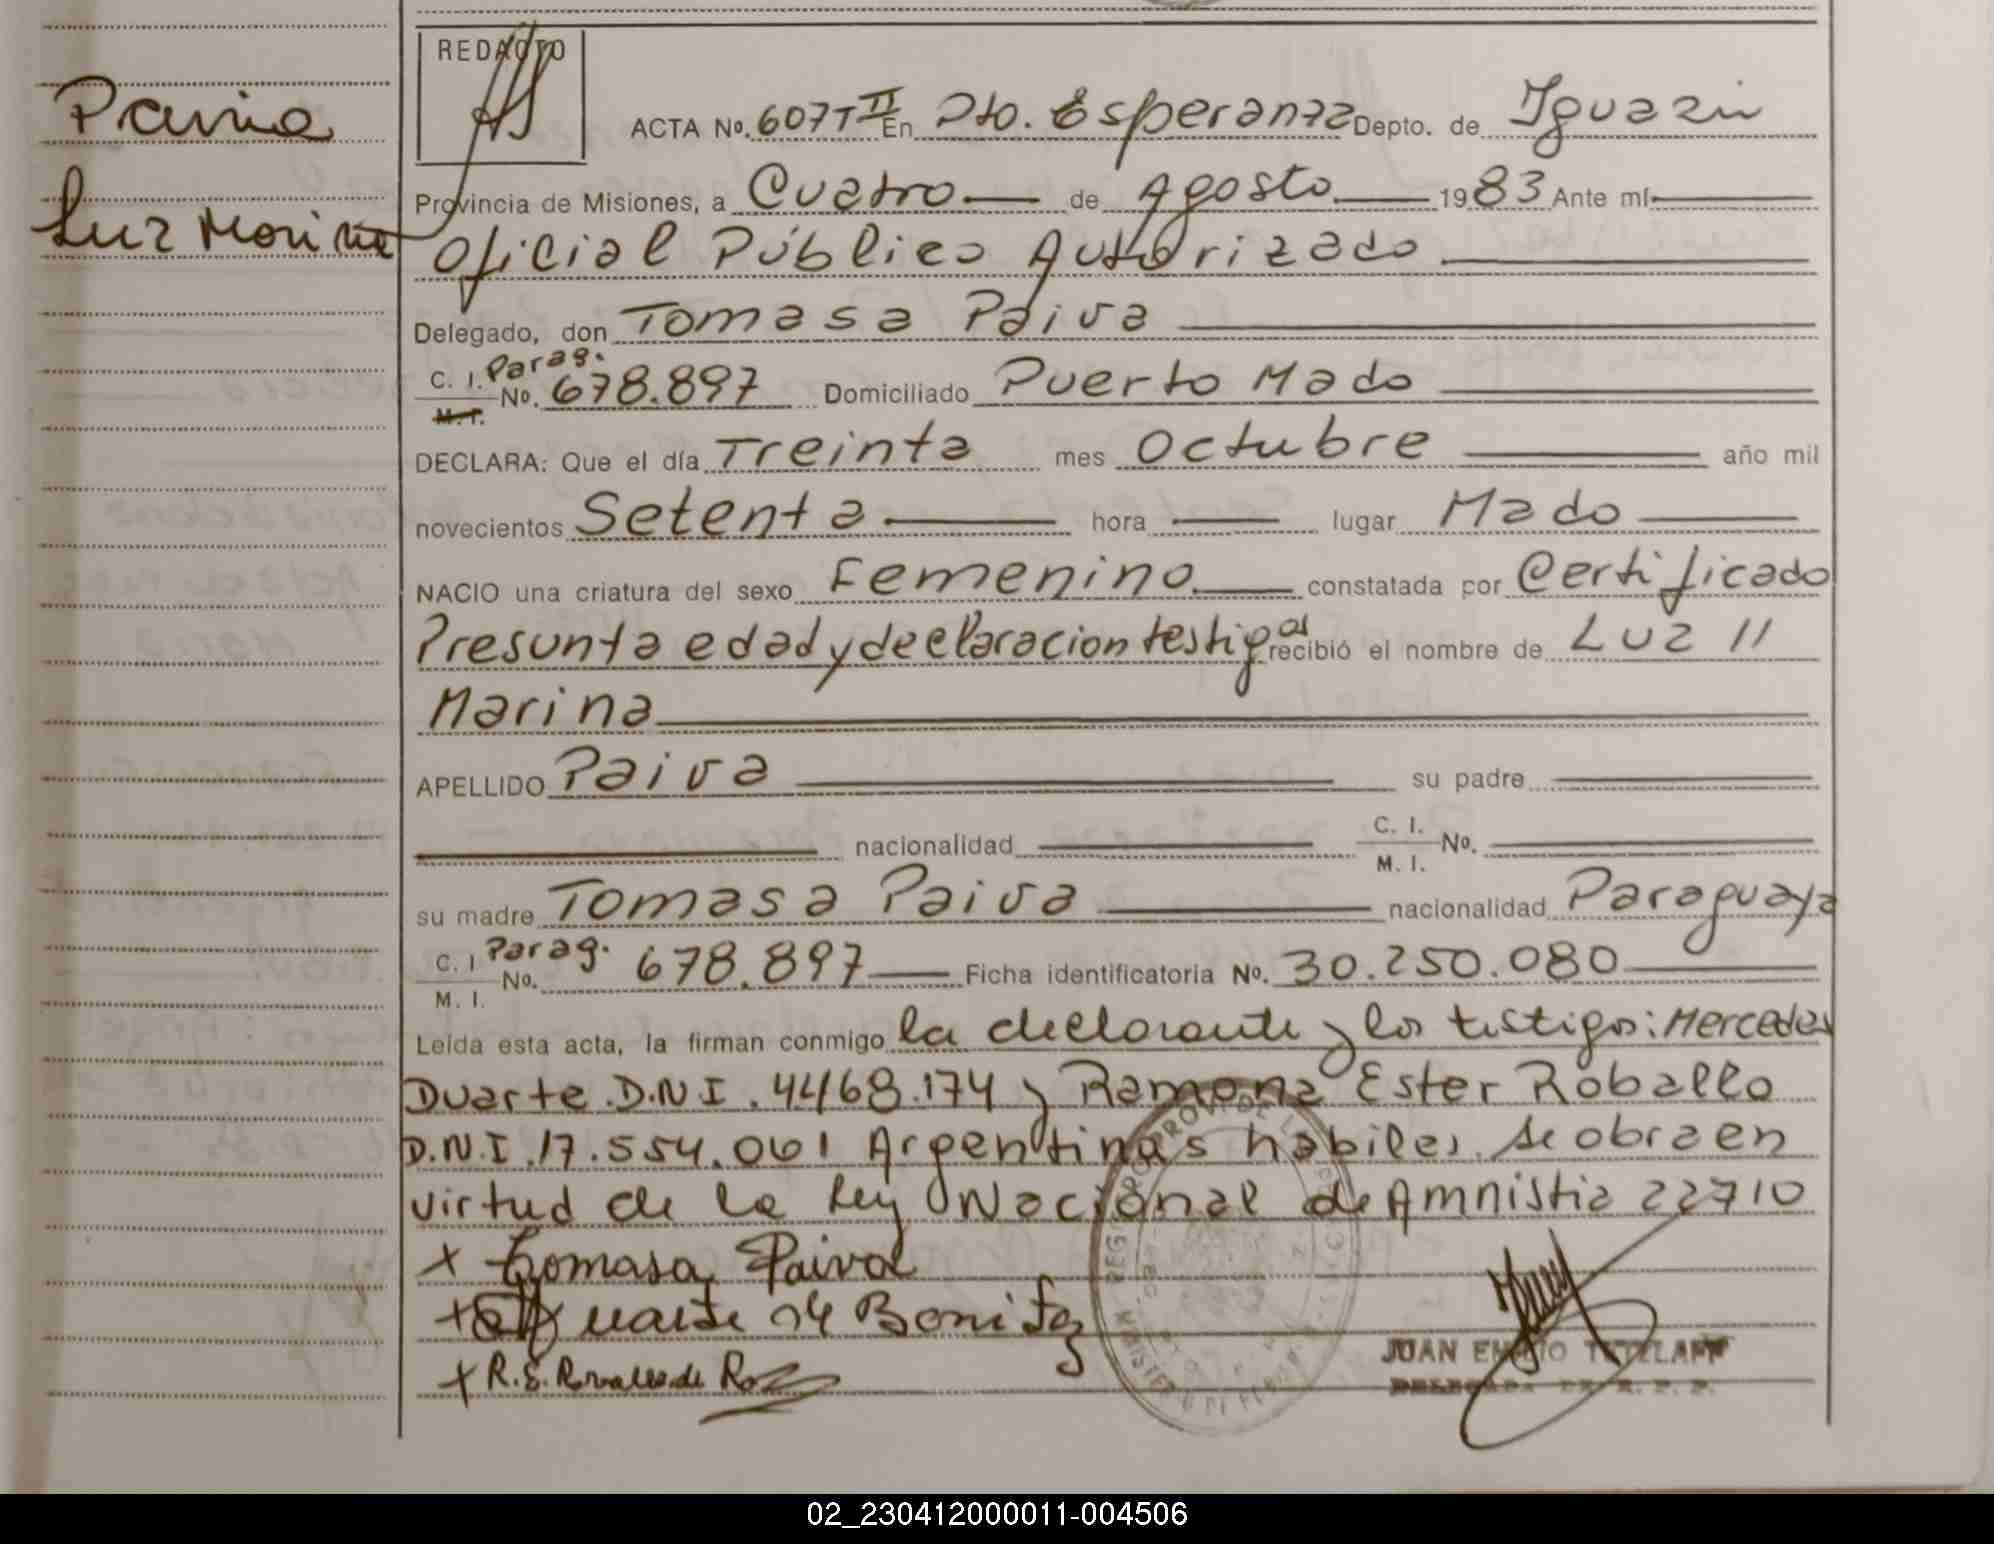 REDACTO
Paiva
Luz Marina
ACTA No. 607 T II En Pto. Esperanza Depto. de Iguazú
Provincia de Misiones, a Cuatro de Agosto 1983 Ante mí
Oficial Público Autorizado
Delegado, don Tomasa Paiva
C. I. Parag. M. I. No. 678.897 Domiciliado Puerto Mado
DECLARA: Que el día Treinta mes Octubre año mil
novecientos Setenta hora lugar Mado
NACIO una criatura del sexo Femenino constatada por Certificado
Presunta edad y declaracion testigos recibió el nombre de LUZ //
Marina
APELLIDO Paiva su padre
nacionalidad C. I. M. I. No.
su madre Tomasa Paiva nacionalidad Paraguaya
C. I. Parag. M. I. No. 678.897 Ficha identificatoria No. 30.250.080
Leída esta acta, la firman conmigo la declarante y los testigos: Mercedes
Duarte D.N.I. 4468.174 y Ramona Ester Roballo
D.N.I. 17.554.061 Argentinas habiles. Se obra en
virtud de la Ley Nacional de Amnistia 22710
x Tomasa Paiva
+ Duarte de Benitez
+ R.E. Rovallo de
JUAN EMILIO TETZLAFF
02_230412000011-004506